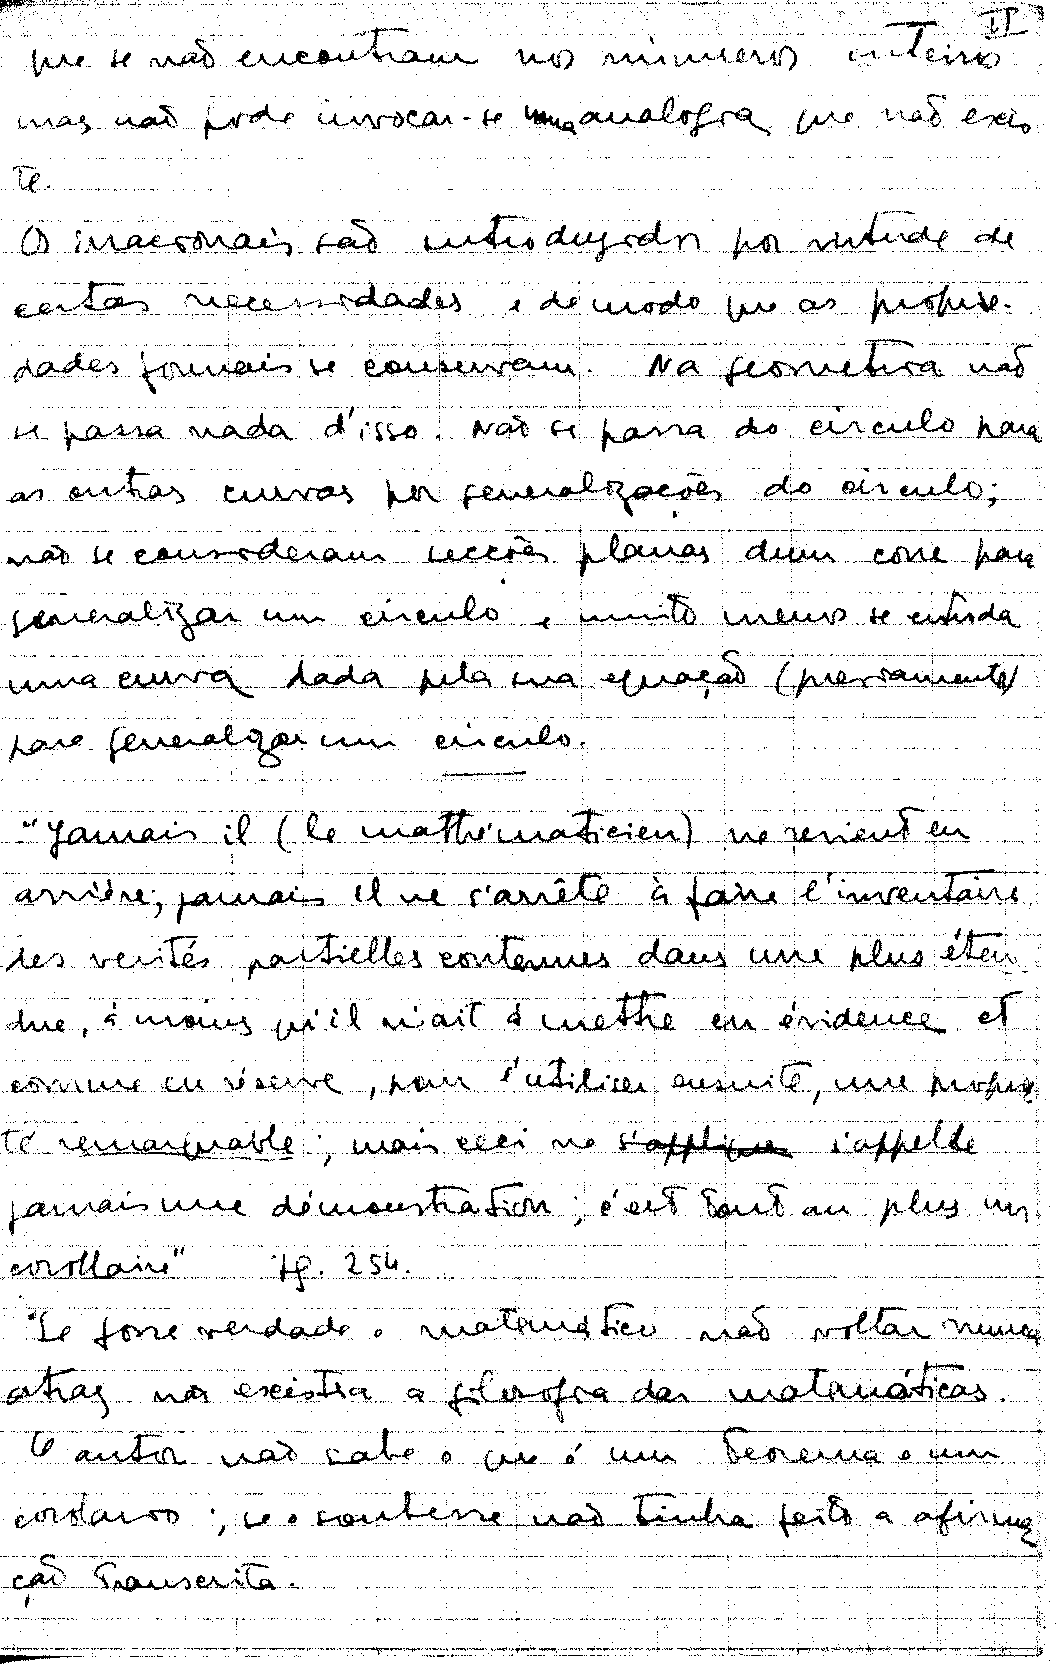 II
que se não encontram nos números inteiros
mas não pode invocar-se uma analogia que não exis
te.
Os irracionais são introduzidos por virtude de
certas necessidades e de modo que as proprie-
dades formais se conservam. Na geometria não
se passa nada d'isso. Não se passa do circulo para
as outras curvas por generalizações do circulo;
não se consideram secções planas dum cone para
generalizar um circulo e muito menos se estuda
uma curva dada pela sua equação (previamente)
para generalizar um circulo.
"Jamais il (le mathématicien) ne revient en
arrière; jamais il ne s'arrête à faire l'inventaire
des verités partielles contenues dans une plus éten
due, à moins qu'il n'ait à mettre en évidence et
comme en réserve, pour l'utiliser ensuite, une proprié
té remarquable; mais ceci ne s'applique s'appelle
jamais une démonstration; c'est tout au plus un
corollaire" 254.
Se fosse verdade o matemático não voltar nunca
atraz não existia a filosofia das matemáticas.
O autor não sabe o que é um teorema e um
corolario; se o soubesse não tinha feito a afirma
ção transcrita.